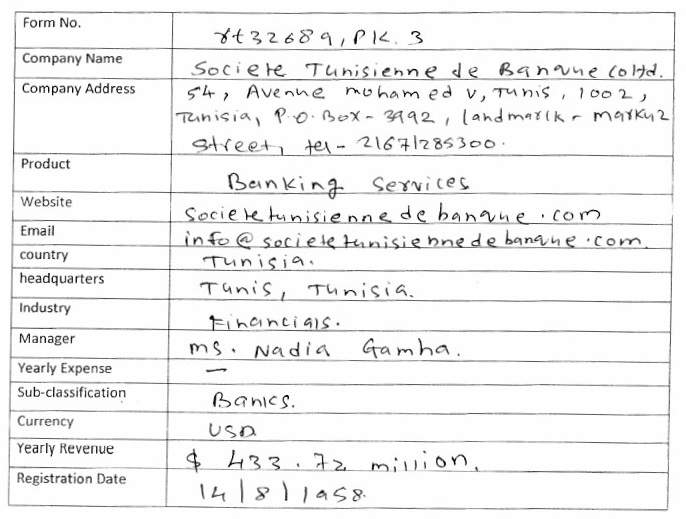 Form No. rt32689, PK. 3
Company Name Societe Tunisienne de Banque co ltd.
Company Address 54, Avenue mohamed v, Tunis, 1002,
Tunisia, P.O. Box - 3992, landmark - markuz
street, tel - 21671285300.
Product Banking Services
Website Societetunisiennedebanque.com
Email info@societetunisiennedebanque.com.
country Tunisia.
headquarters Tunis, Tunisia.
Industry Financials.
Manager ms. Nadia Gamha.
Yearly Expense —
Sub-classification Banks.
Currency USD
Yearly Revenue $ 433.72 million.
Registration Date 14/8/1958.